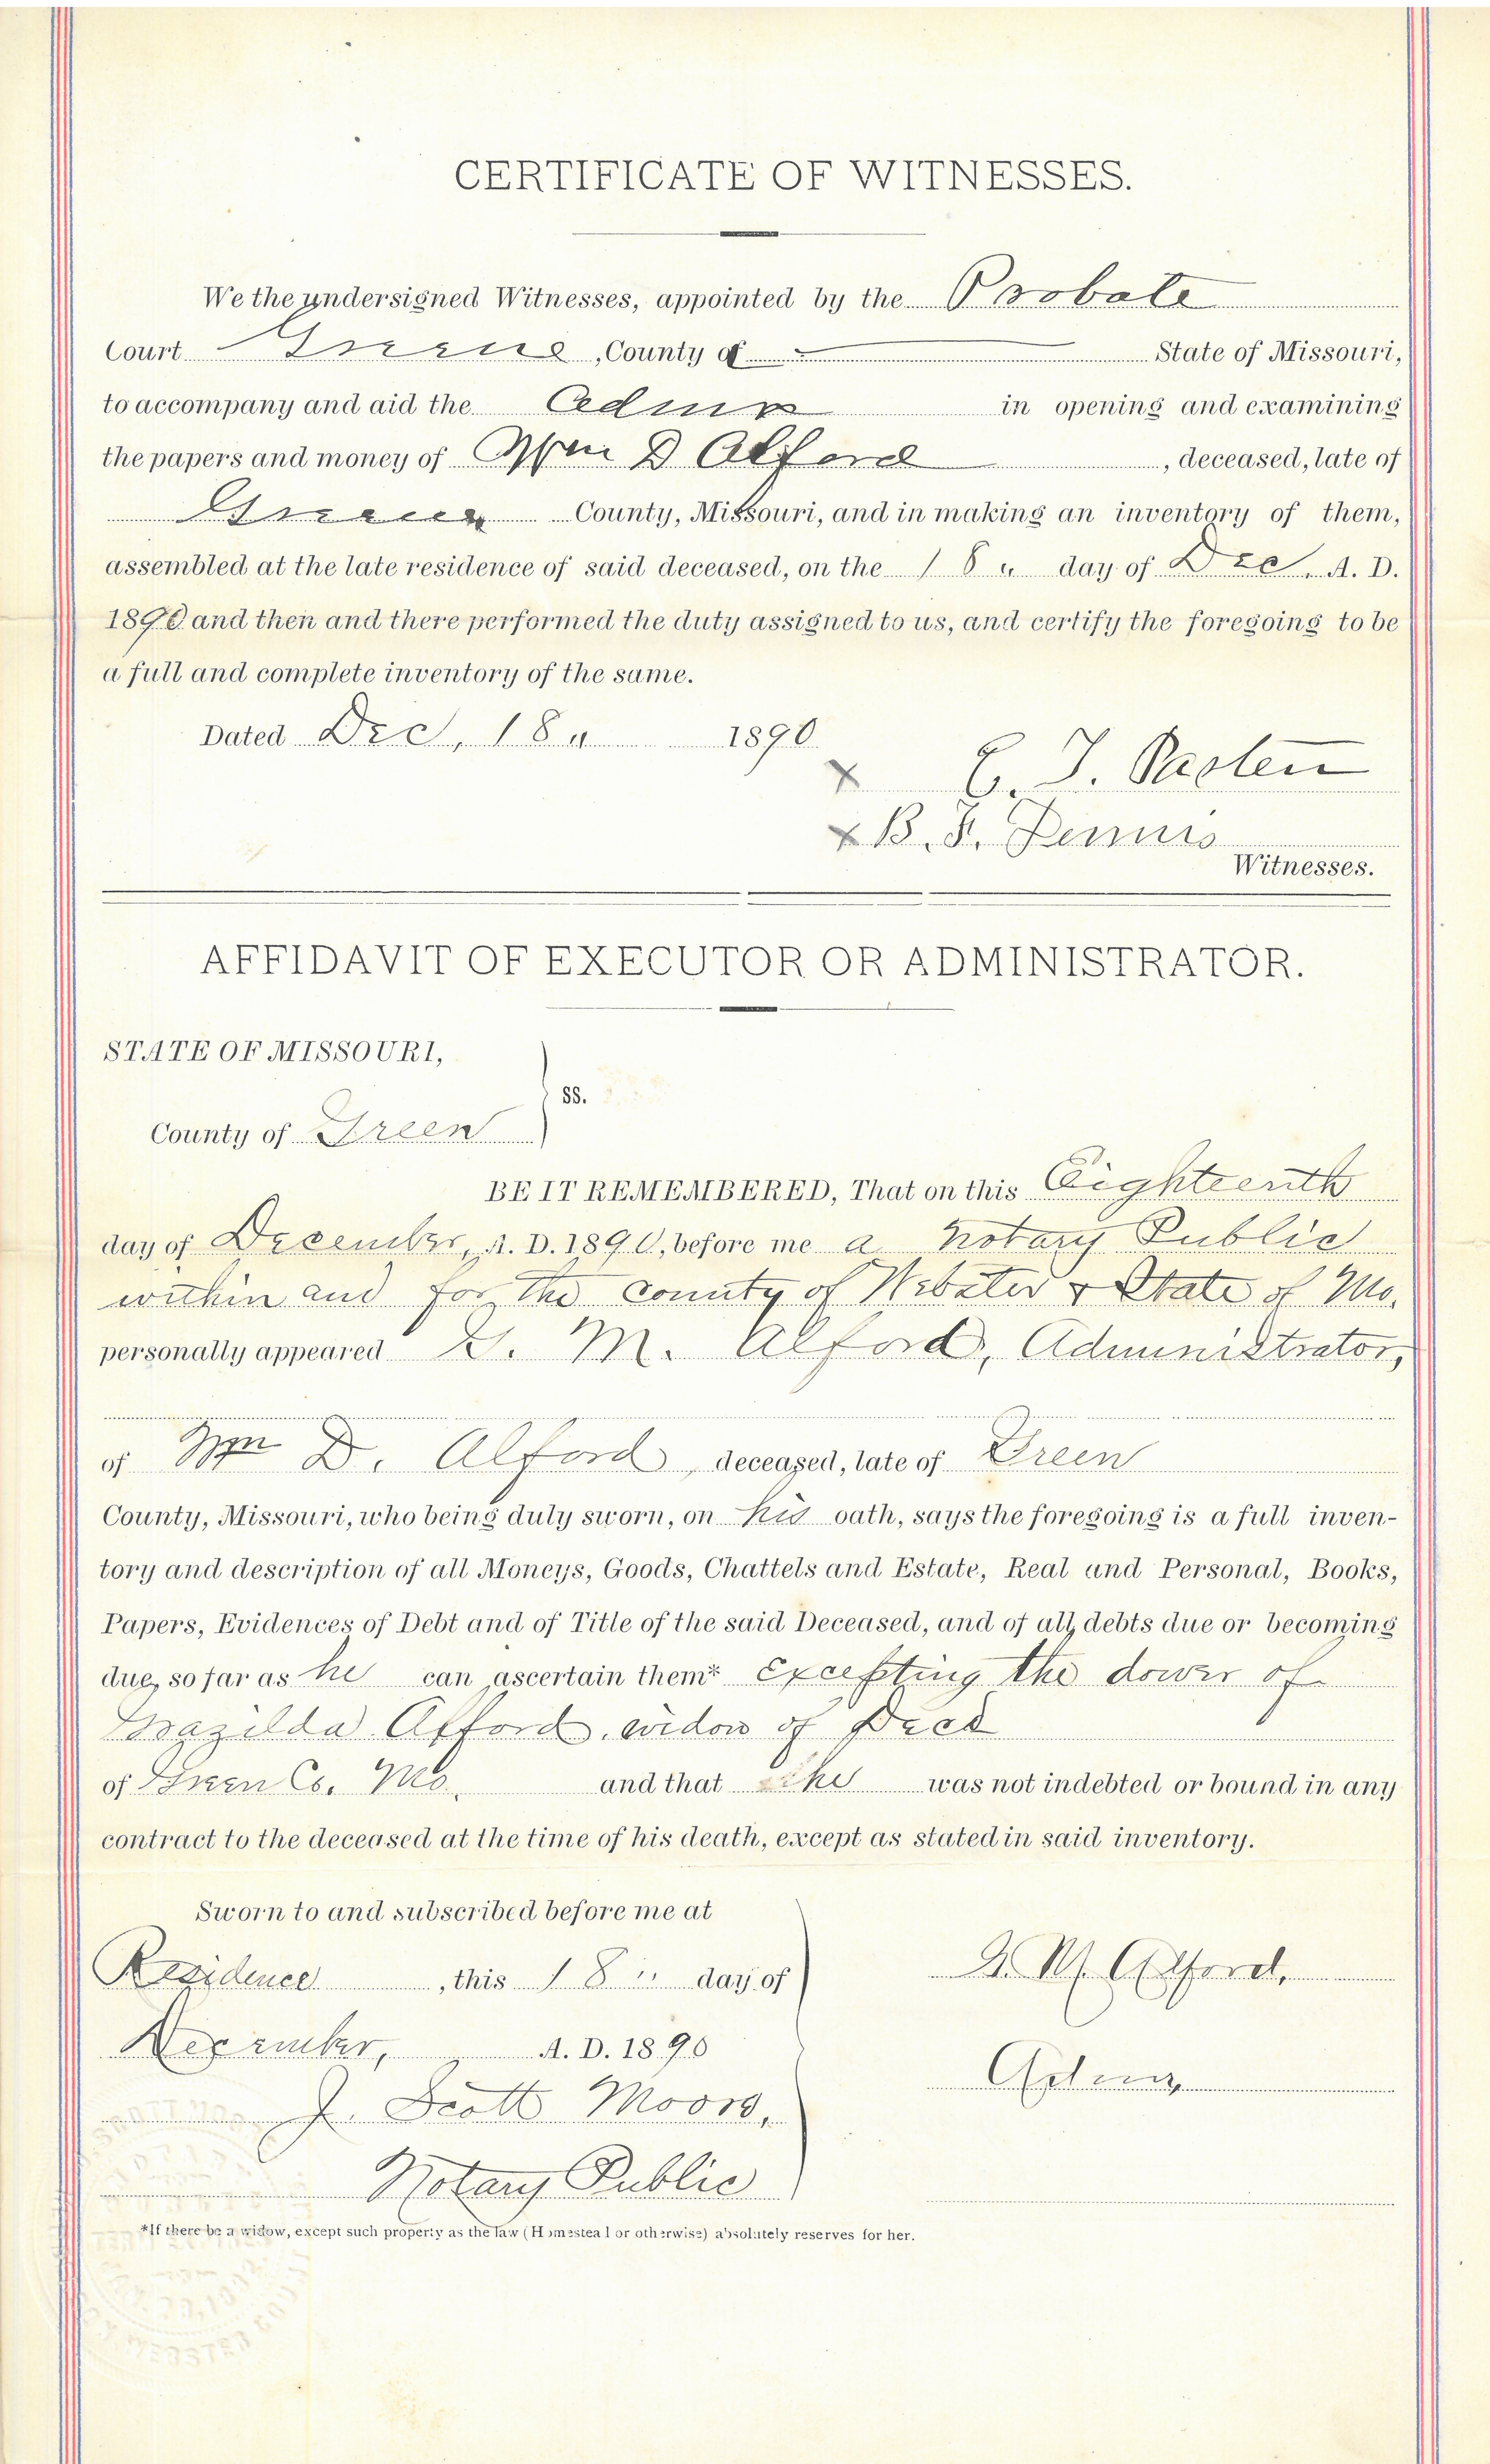 CERTIFICATE OF WITNESSES.
We the undersigned Witnesses, appointed by the Probate
Court Greene, County of State of Missouri,
to accompany and aid the Admr in opening and examining
the papers and money of Wm D Alford, deceased, late of
Greene County, Missouri, and in making an inventory of them,
assembled at the late residence of said deceased, on the 18 " day of Dec, A. D.
1890 and then and there performed the duty assigned to us, and certify the foregoing to be
a full and complete inventory of the same.
Dated Dec, 18 " 1890
x
x B. F. Dennis
Witnesses.
AFFIDAVIT OF EXECUTOR OR ADMINISTRATOR.
STATE OF MISSOURI,
ss.
County of Green
BE IT REMEMBERED, That on this Eighteenth
day of December, A. D. 1890, before me a Notary Public
within and for the County of Webster & State of Mo.
personally appeared G. M. Alford, Administrator,
of Wm D. Alford, deceased, late of Green
County, Missouri, who being duly sworn, on his oath, says the foregoing is a full inven-
tory and description of all Moneys, Goods, Chattels and Estate, Real and Personal, Books,
Papers, Evidences of Debt and of Title of the said Deceased, and of all debts due or becoming
due, so far as he can ascertain them* excepting the dower of
Alford, widow of Decd
of Green Co. Mo. and that he was not indebted or bound in any
contract to the deceased at the time of his death, except as stated in said inventory.
Sworn to and subscribed before me at
Residence, this 18 " day of
December, A. D. 1890
J. Scott Moore,
Notary Public
G. M. Alford,
Admr
*If there be a widow, except such property as the law (Homestead or otherwise) absolutely reserves for her.